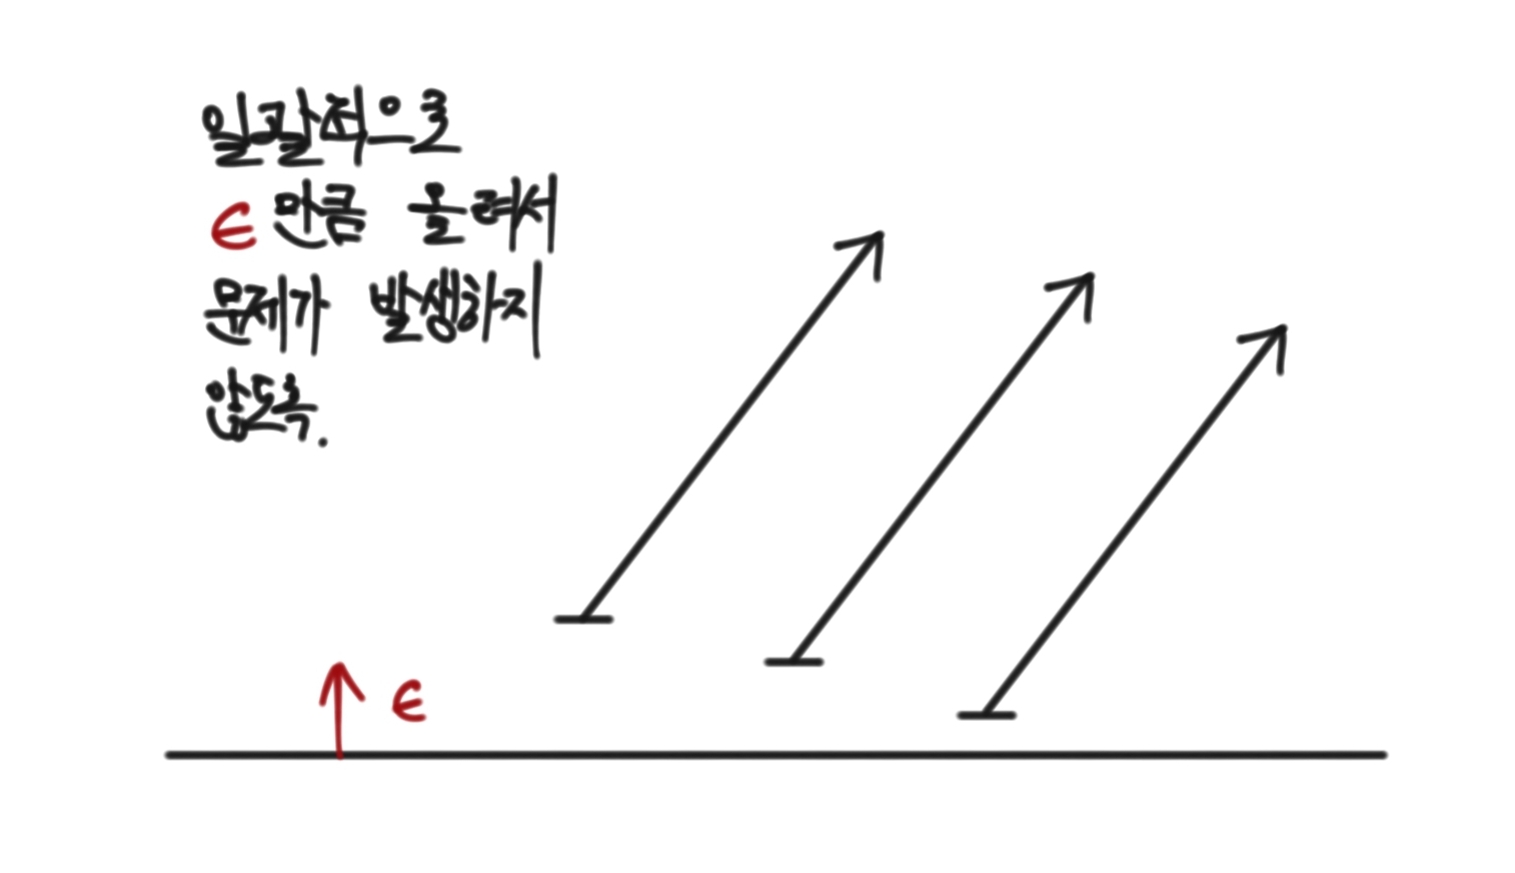 일괄적으로
ϵ 만큼 올려서
문제가 발생하지
않도록.
ϵ